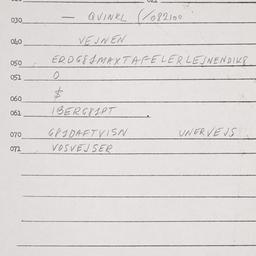 030 — QVINKL (/082100
040 VEJNEN
050 ERDG81MAXTAFELERLEJNENDIK8
051 0
060 $
061 1BERG81PT .
070 G81DAFTVISN UNERVEJS
071 VOSVEJSER